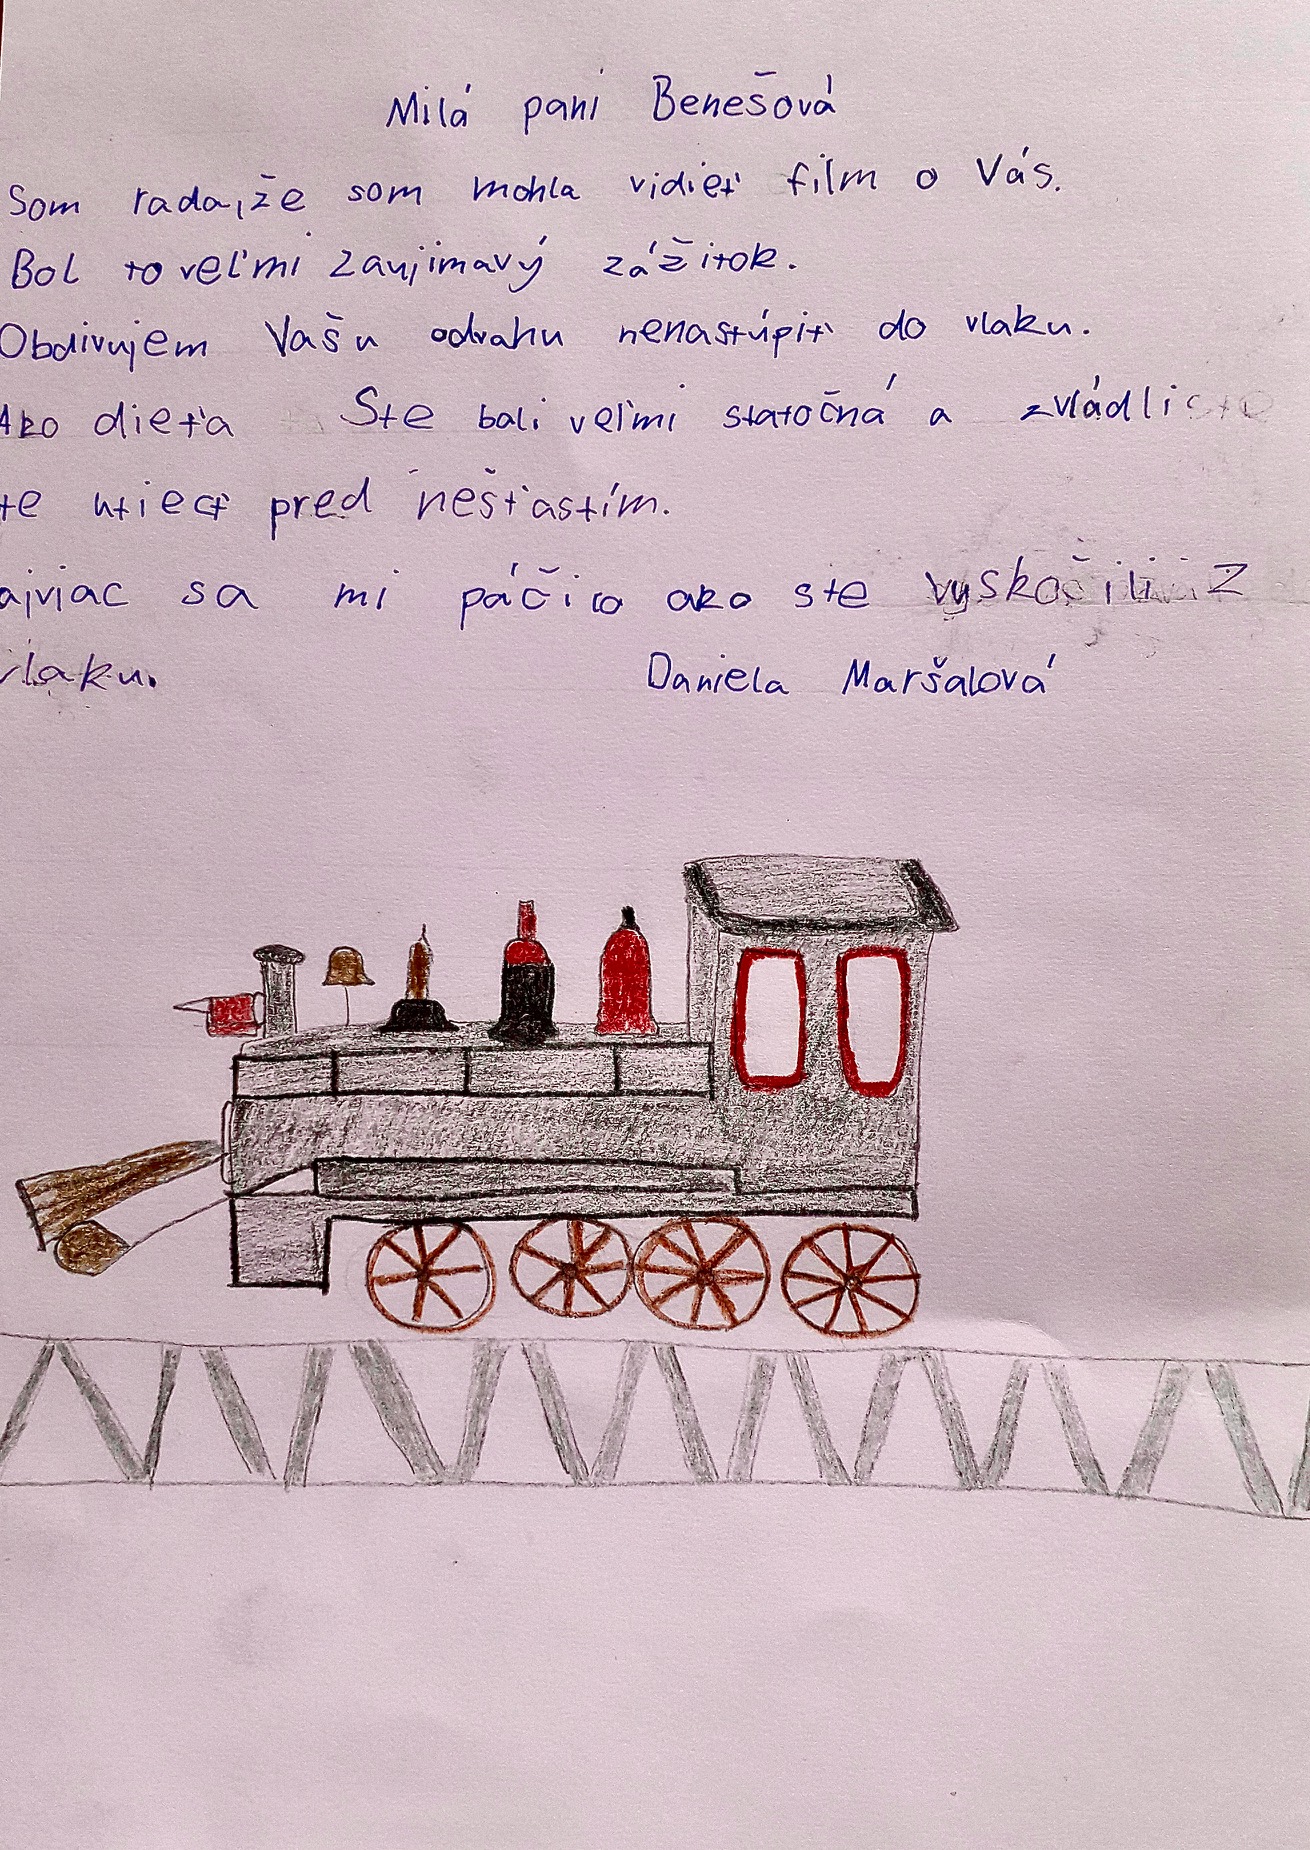 Milá pani Benešová
Som rada, že som mohla vidieť film o Vás.
Bol to veľmi zaujimavý zážitok.
Obdivujem Vašu odvahu nenastúpiť do vlaku.
Ako dieťa Ste boli veľmi statočná a zvládli ste
te utiecť pred nešťastím.
ajviac sa mi páčilo ako ste vyskočili z
vlaku.
Daniela Maršalová